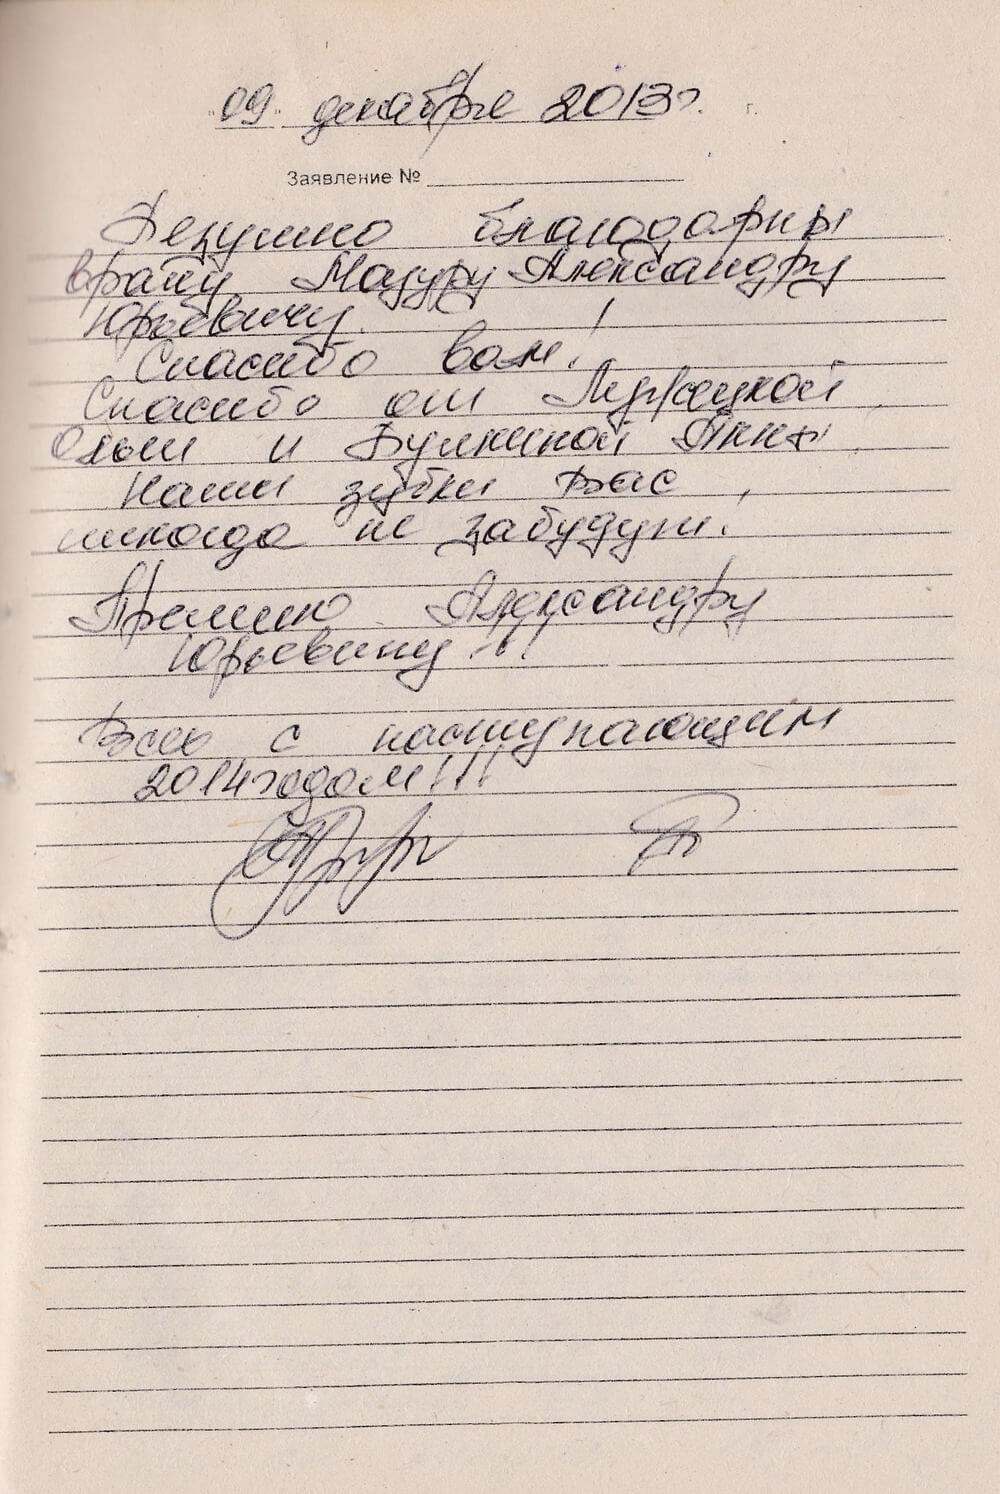 "09" декабря 2013г. г.
Заявление №
Безумно благодарны
врачу Мазуру Александру
Юрьевичу !
Спасибо вам!
Спасибо от
Ольги и Булкиной Анны
Наши зубки Вас
никогда не забудут!
Премию Александру
Юрьевичу !!!
Всех с наступающим
2014 годом!!!